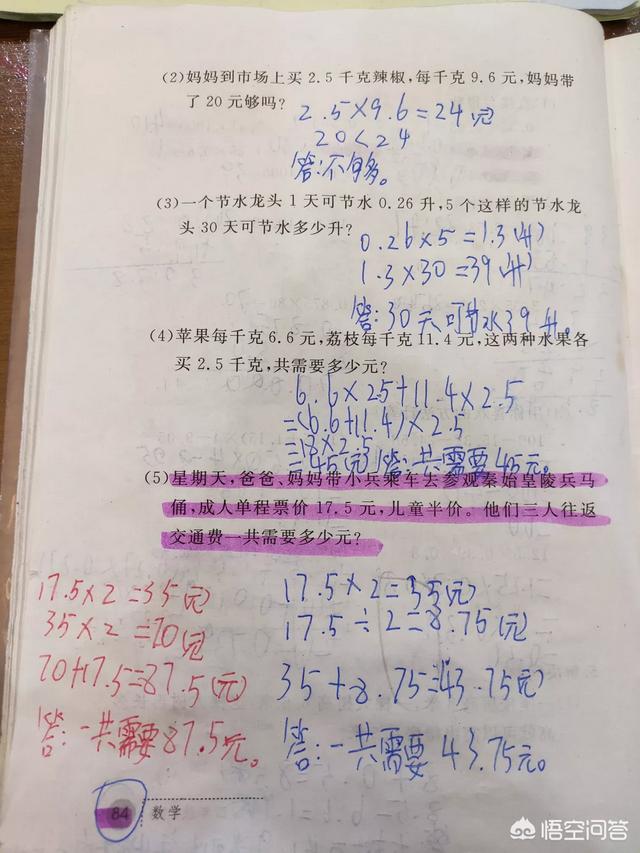 (2)妈妈到市场上买 2.5 千克辣椒，每千克 9.6 元，妈妈带
了 20 元够吗？
2.5×9.6=24(元)
20<24
答：不够。
(3)一个节水龙头 1 天可节水 0.26 升，5 个这样的节水龙
头 30 天可节水多少升？
0.26×5=1.3(升)
1.3×30=39(升)
答：30天可节水39升。
(4)苹果每千克 6.6 元，荔枝每千克 11.4 元，这两种水果各
买 2.5 千克，共需要多少元？
6.6×25+11.4×2.5
=(6.6+11.4)×2.5
=18×2.5
=45(元) 答：共需要45元。
(5)星期天，爸爸、妈妈带小兵乘车去参观秦始皇陵兵马
俑，成人单程票价 17.5 元，儿童半价。他们三人往返
交通费一共需要多少元？
17.5×2=35(元)
35×2=70(元)
70+17.5=87.5(元)
答：一共需要87.5元。
17.5×2=35(元)
17.5÷2=8.75(元)
35+8.75=43.75(元)
答：一共需要43.75元。
84 数学
悟空问答